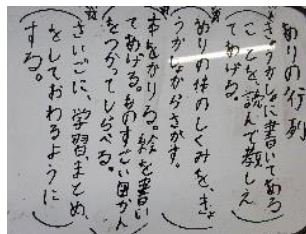 ありの行列
☆きょうかしょに書いてある
ことを読んで教しえ
てあげる。
ありの体のしくみを、きょ
うかしょからさがす。
本をかりる。絵を書い
てあげる。ものすごい図かん
をつかってしらべる。
さいごに、学習まとめ、
をしておわるように
する。